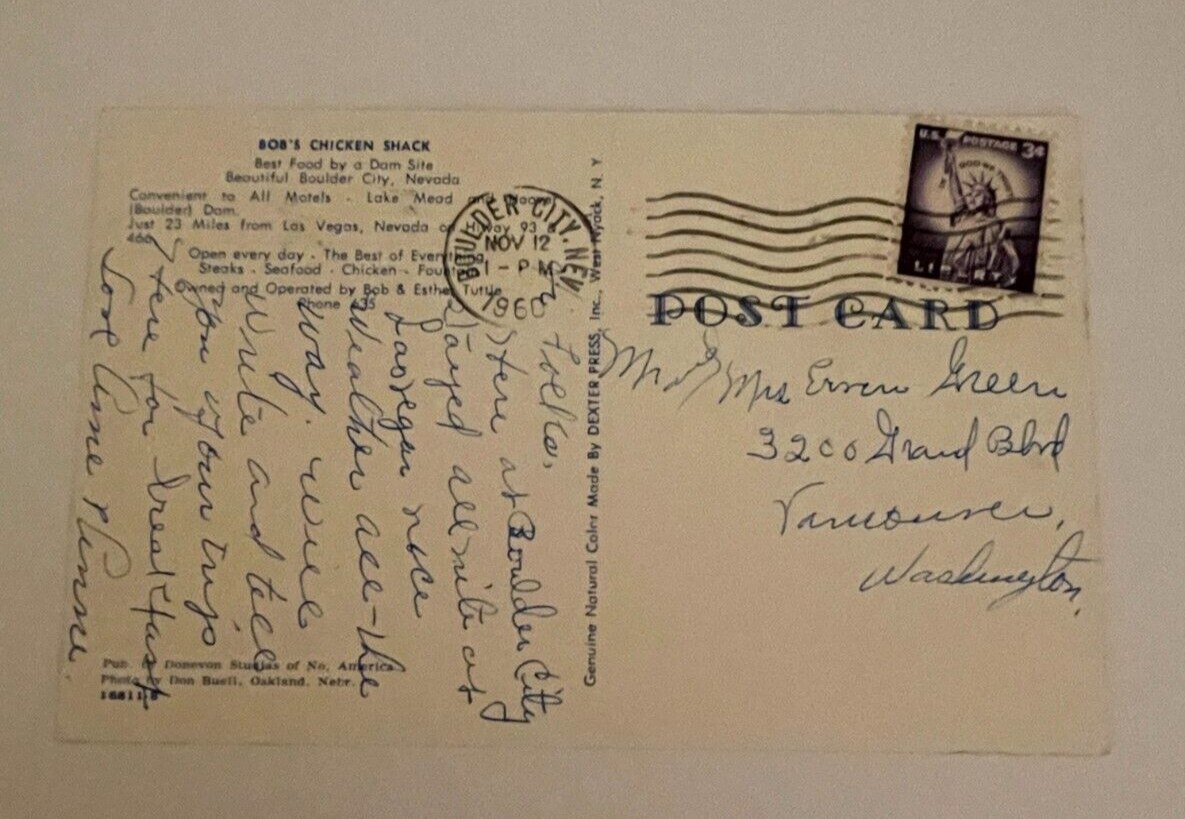 BOB'S CHICKEN SHACK
Best Food by a Dam Site
Beautiful Boulder City, Nevada
Convenient to All Motels - Lake Mead and Hoover
(Boulder) Dam.
Just 23 Miles from Las Vegas, Nevada on Hiway 93 &
466
Open every day - The Best of Everything
Steaks - Seafood - Chicken - Fountain
Owned and Operated by Bob & Esther Tuttle
Phone 635
Folks,
Here at Boulder City
Stayed all nite at
Las Vegas nice
Weather all the
way. Will
Write and tell
you of our trip
Here for breakfast
Love
Pub. by Donovan Studios of No. America
Photo by Don Buell, Oakland, Nebr.
16811-B
Genuine Natural Color Made By DEXTER PRESS, Inc., West Nyack, N. Y.
BOULDER CITY, NEV.
NOV 12
1 - PM
1960
U.S. POSTAGE 3¢
IN GOD WE TRUST
LIBERTY
POST CARD
Mr & Mrs Green
3200 Grand Blvd
Vancouver,
Washington.